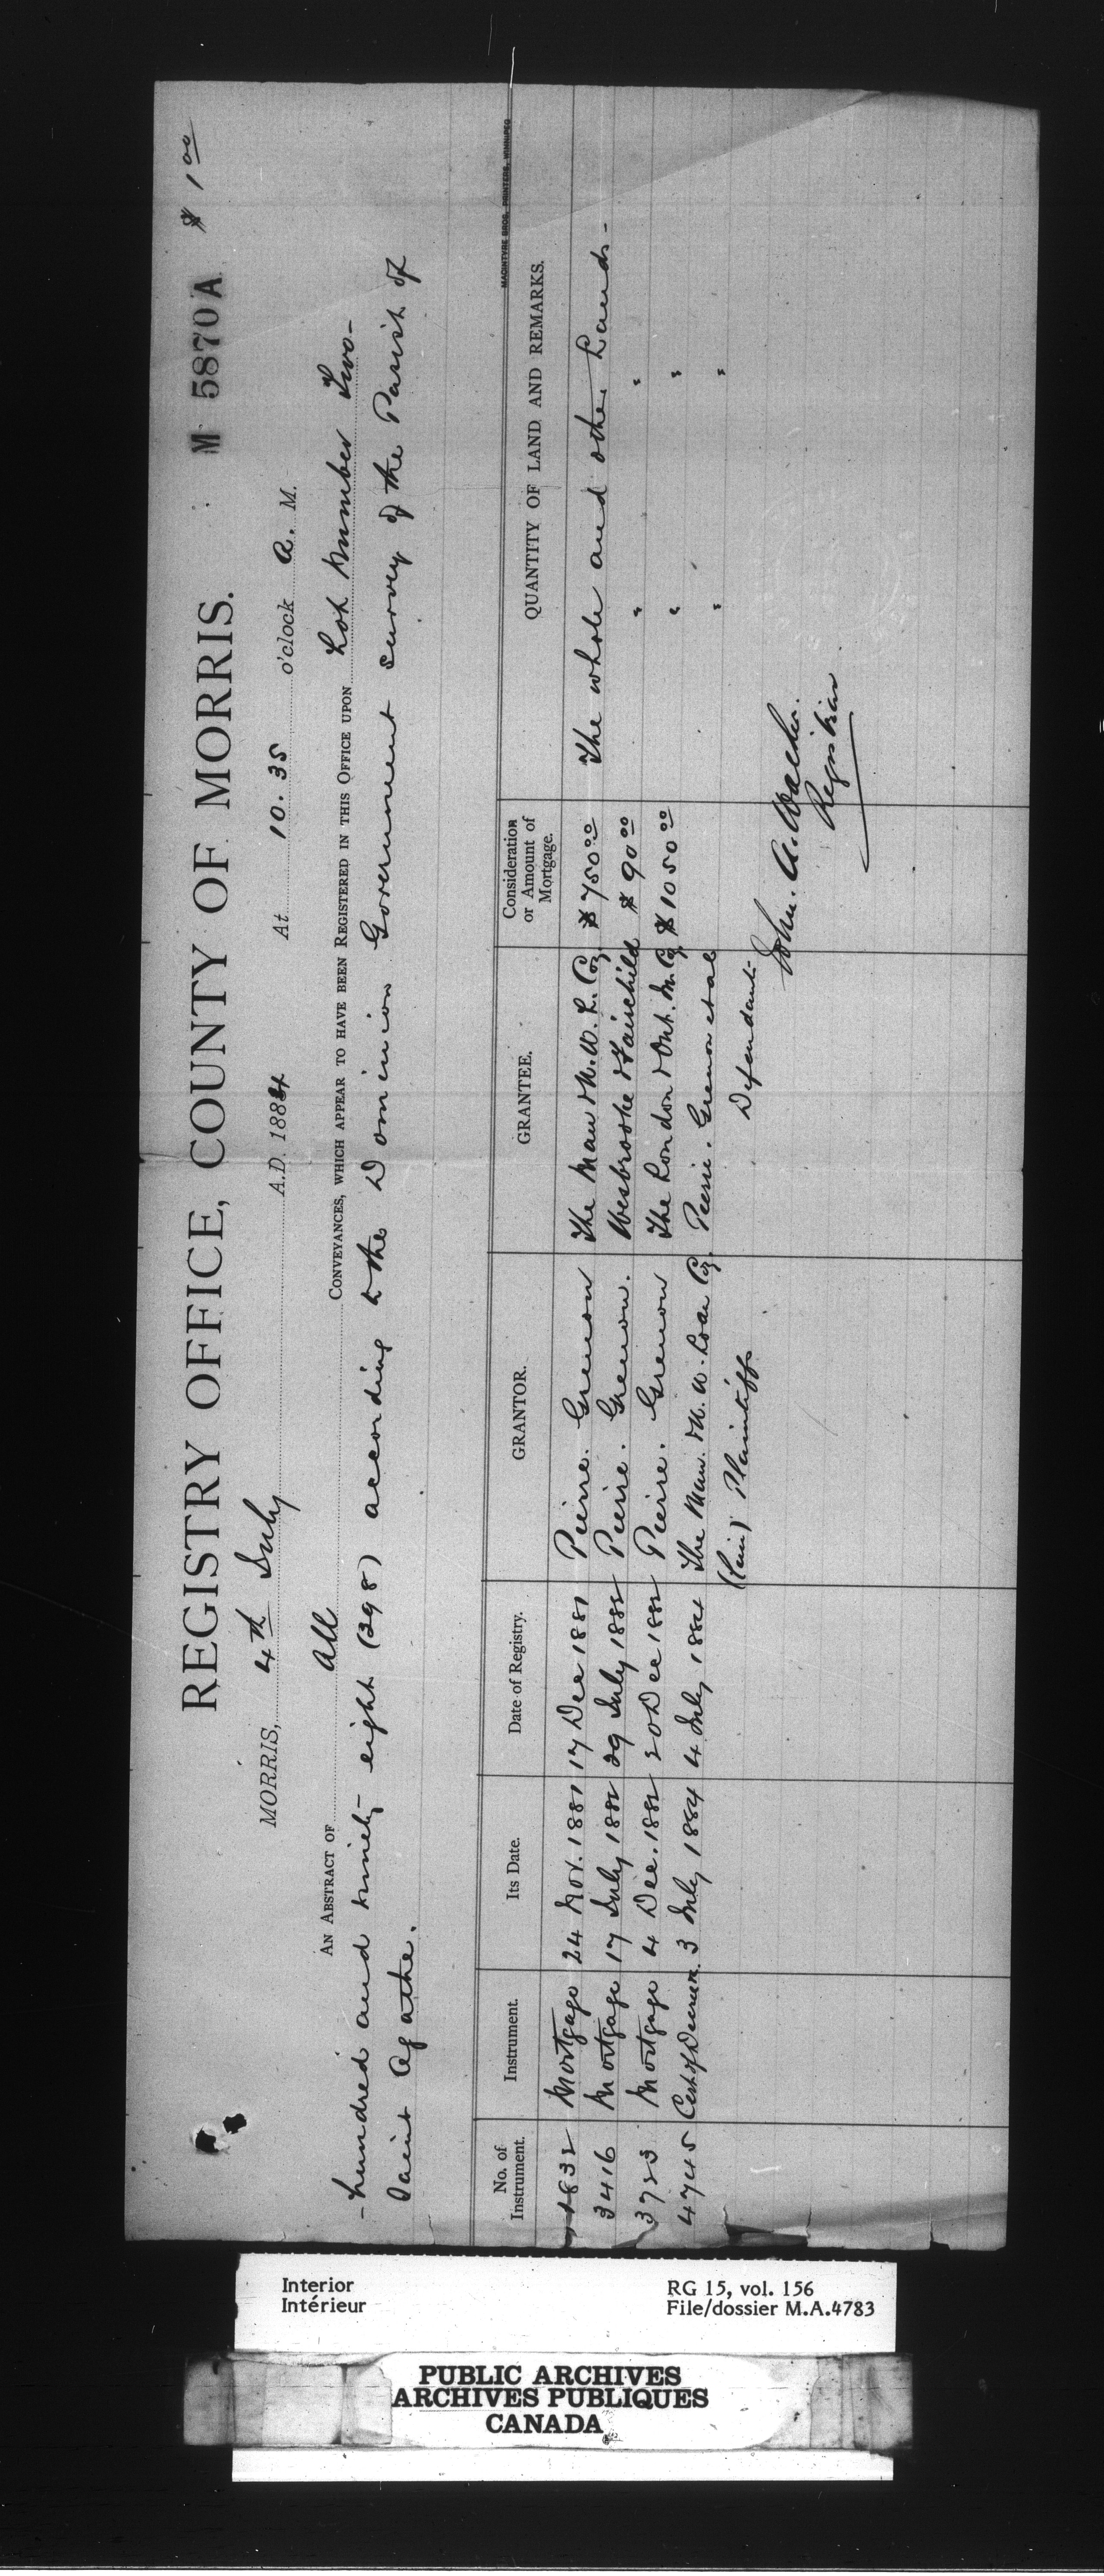 M 5870A $1 00
REGISTRY OFFICE, COUNTY OF MORRIS.
MORRIS, 4th July A.D. 1884 At 10.35 o'clock A. M.
AN ABSTRACT OF All CONVEYANCES, WHICH APPEAR TO HAVE BEEN REGISTERED IN THIS OFFICE UPON Lot Number Two-
-hundred and ninety-eight (298) according to the Dominion Government survey of the Parish of
Saint Agathe.
MACINTYRE BROS. PRINTERS, WINNIPEG
No. of Instrument. Instrument. Its Date. Date of Registry. GRANTOR. GRANTEE. Consideration or Amount of Mortgage. QUANTITY OF LAND AND REMARKS.
1832 Mortgage 24 Nov. 1881 17 Dec 1881 Pierre. Grenon The Man & N. W. L. Coy. $750 00 The whole and other Lands-
3416 Mortgage 17 July 1882 29 July 1882 Pierre. Grenon. Wesbrooke & Fairchild $90 00 " "
3723 Mortgage 4 Dec. 1882 20 Dec 1882 Pierre. Grenon The London & Ont. In. Co. $1050 00 " "
4745 Cert of Decree. 3 July 1884 4 July 1884 The Man. & N. W. Loan Coy. Pierre. Grenon et al " "
(Lim) Plaintiffs Defendants
John. A.
Registrar
Interior RG 15, vol. 156
Intérieur File/dossier M.A.4783
PUBLIC ARCHIVES
ARCHIVES PUBLIQUES
CANADA